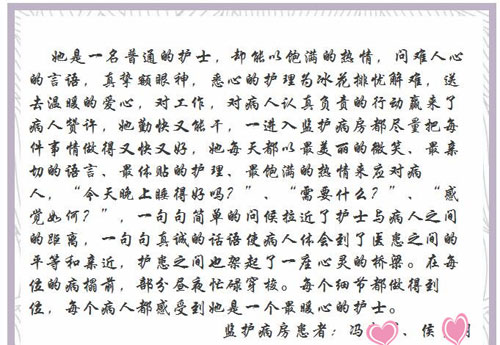 她是一名普通的护士，却能以饱满的热情，问难人心
的言语，真挚额眼神，悉心的护理为冰花排忧解难，送
去温暖的爱心，对工作，对病人认真负责的行动赢来了
病人赞许，她勤快又能干，一进入监护病房都尽量把每
件事情做得又快又好，她每天都以最美丽的微笑、最亲
切的语言、最体贴的护理、最饱满的热情来应对病
人，“今天晚上睡得好吗？”、“需要什么？”、“感
觉如何？”，一句句简单的问候拉近了护士与病人之间
的距离，一句句真诚的话语使病人体会到了医患之间的
平等和亲近，护患之间也架起了一座心灵的桥梁。在每
位的病榻前，部分昼夜忙碌穿拔。每个细节都做得到
位，每个病人都感受到她是一个最暖心的护士。
监护病房患者：冯、侯